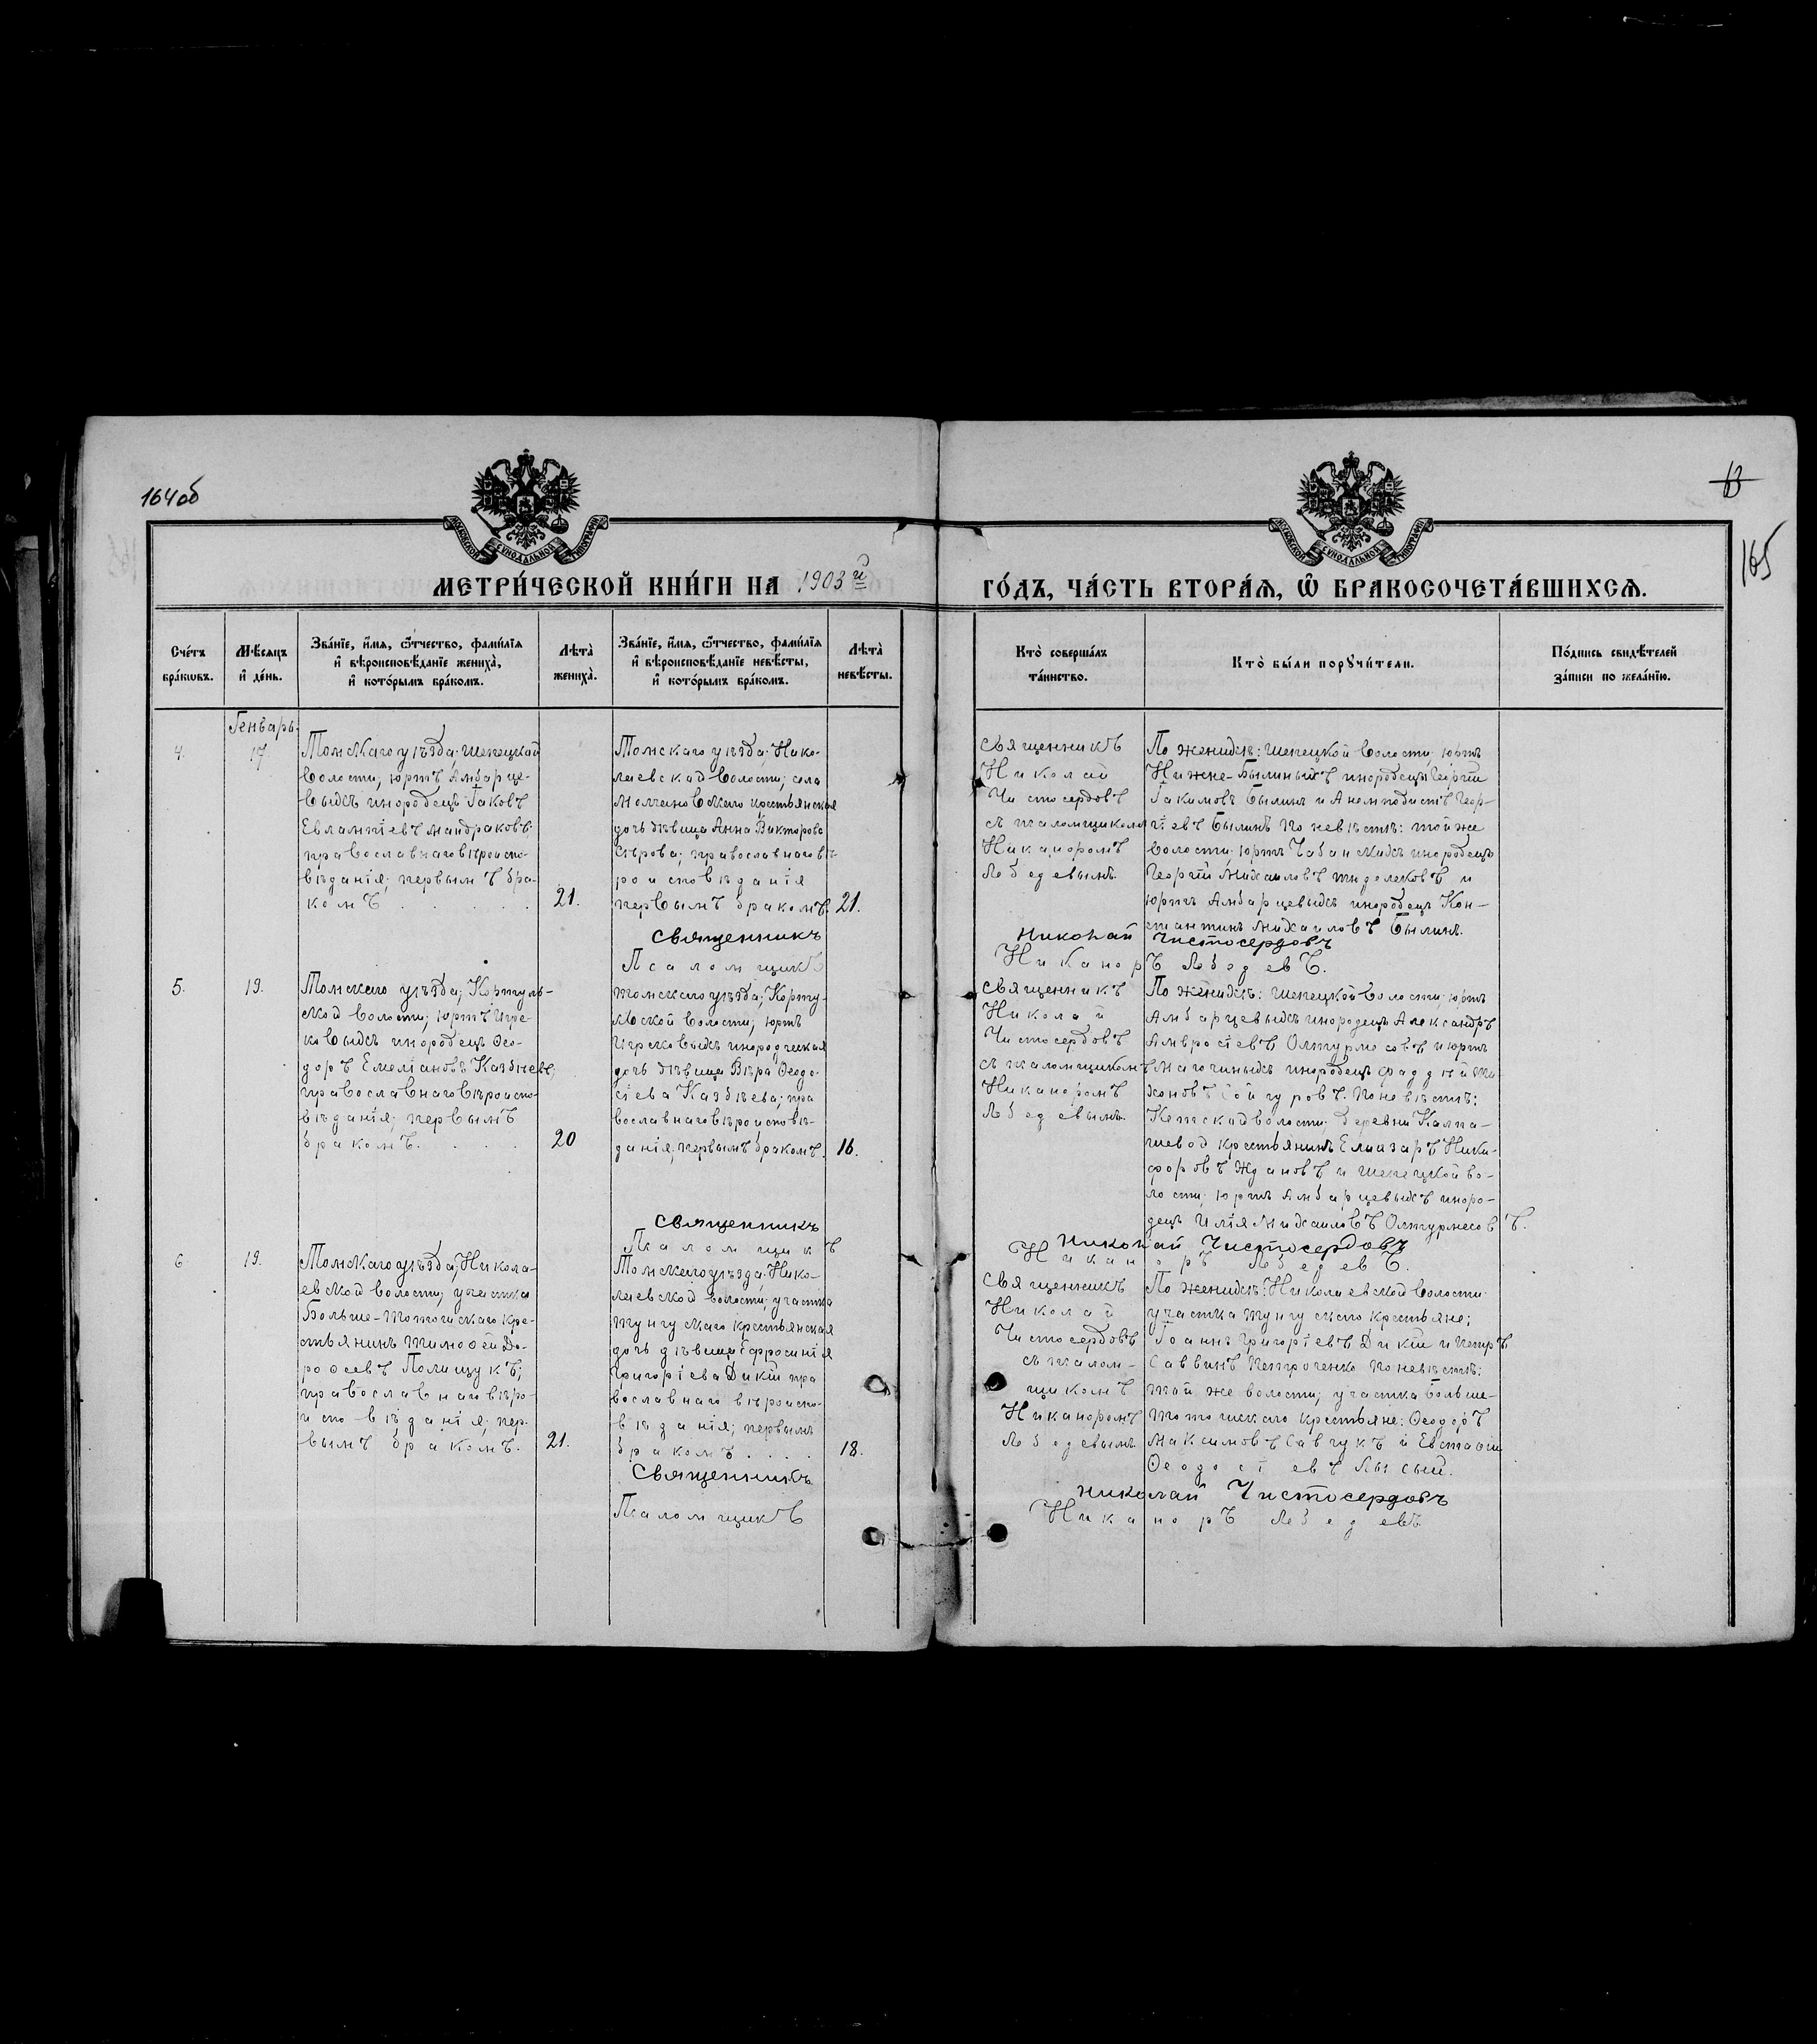 164об
63
165
МОСКОВСКОЙ СѴНОДАЛЬНОЙ ТИПОГРАФІИ
МОСКОВСКОЙ СѴНОДАЛЬНОЙ ТИПОГРАФІИ
МЕТРИ́ЧЕСКОЙ КНИ́ГИ НА 1903й
ГО́ДЪ, ЧА́СТЬ ВТОРА́Я, Ѽ БРАКОСОЧЕТА́ВШИХСЯ.
Сче́тъ
бра́кѡвъ.
Мѣсяцъ
и҆ де́нь.
Зва́нїе, и҆́мя, ѻ҆́тчество, фами́лїя
и҆ вѣроисповѣ́данїе жениха̀,
и҆ кото́рымъ бра́комъ.
Лѣта̀
жениха̀.
Зва́нїе, и҆́мя, ѻ҆́тчество, фами́лїя
и҆ вѣроисповѣ́данїе невѣ́сты,
и҆ кото́рымъ бра́комъ.
Лѣта̀
невѣ́сты.
Кто̀ соверша́лъ
та́инство.
Кто̀ бы́ли порꙋчи́тели.
По́дпись свидѣ́телей
за́писи по жела́нїю.
Генварь.
4.
17
Томскаго уѣзда; Шепецкой
волости; юртъ Амбарце-
выхъ инородецъ Іаковъ
Евлампіевъ Мандраковъ;
православнаго вѣроиспо-
вѣданія; первымъ бра-
комъ
21.
Томскаго уѣзда; Нико-
лаевской волости; села
Молчановскаго крестьянская
дочь дѣвица Анна Викторова
Сѣрова; православнаго вѣ-
роисповѣданія
первымъ бракомъ.
21.
Священникъ
Николай
Чистосердовъ
съ псаломщикомъ
Никаноромъ
Лебедевымъ.
По женихѣ: Шепецкой волости; юртъ
Нижне-Былиныхъ инородецъ Георгій
Іакимовъ Былинъ и Анемподистъ Геор-
гіевъ Былинъ. По невѣстѣ: той же
волости; юртъ Чабанскихъ инородецъ
Георгій Михаиловъ Тидолековъ и
юртъ Амбарцевыхъ инородецъ Кон-
стантинъ Михаиловъ Былинъ.
Священникъ Николай Чистосердовъ
Псаломщикъ Никаноръ Лебедевъ.
5.
19.
Томскаго уѣзда; Кортуль-
ской волости; юртъ Игре-
ковыхъ инородецъ Ѳео-
доръ Емеліановъ Казбѣевъ,
православнаго вѣроиспо-
вѣданія; первымъ
бракомъ.
20
Томскаго уѣзда; Корту-
льской волости; юртъ
Игрековыхъ инородческая
дочь дѣвица Вѣра Ѳеодо-
сіева Казбѣева; пра
вославнаго вѣроисповѣ-
данія; первымъ бракомъ.
16.
Священникъ
Николай
Чистосердовъ
съ псаломщикомъ
Никаноромъ
Лебедевымъ.
По женихѣ: Шепецкой волости; юртъ
Амбарцевыхъ инородецъ Александръ
Амвросіевъ Олтурмесовъ и юртъ
Магочиныхъ инородецъ Фаддѣй Ти
хоновъ Сойгуровъ. По невѣстѣ:
Кетской волости; деревни Колпа-
шевой крестьянинъ Елиазаръ Ники-
форовъ Ждановъ и Шепецкой во-
лости; юртъ Амбарцевыхъ иноро-
децъ Илія Михаиловъ Олтурмесовъ.
Священникъ Николай Чистосердовъ
Псаломщикъ Никаноръ Лебедевъ.
6
19.
Томскаго уѣзда; Никола-
евской волости; участка
Больше-Тотошскаго кре-
стьянинъ Тимоѳей До-
роѳеевъ Полищукъ;
православнаго вѣро-
исповѣданія; пер-
вымъ бракомъ.
21.
Томскаго уѣзда; Нико-
лаевской волости; участка
Тунгускаго крестьянская
дочь дѣвица Ефросинія
Григоріева Дикій пра
вославнаго вѣроиспо-
вѣданія; первымъ
бракомъ
18.
Священникъ
Николай
Чистосердовъ
съ псалом-
щикомъ
Никаноромъ
Лебедевымъ.
По женихѣ: Николаевской волости;
участка Тунгускаго крестьяне;
Іоаннъ Григоріевъ Дикій и Петръ
Саввинъ Петроченко По невѣстѣ:
той же волости; участка Больше-
Тотошскаго крестьяне: Ѳеодоръ
Максимовъ Савчукъ и Евстафій
Ѳеодосіевъ Лысый.
Священникъ Николай Чистосердовъ
Псаломщикъ Никаноръ Лебедевъ.